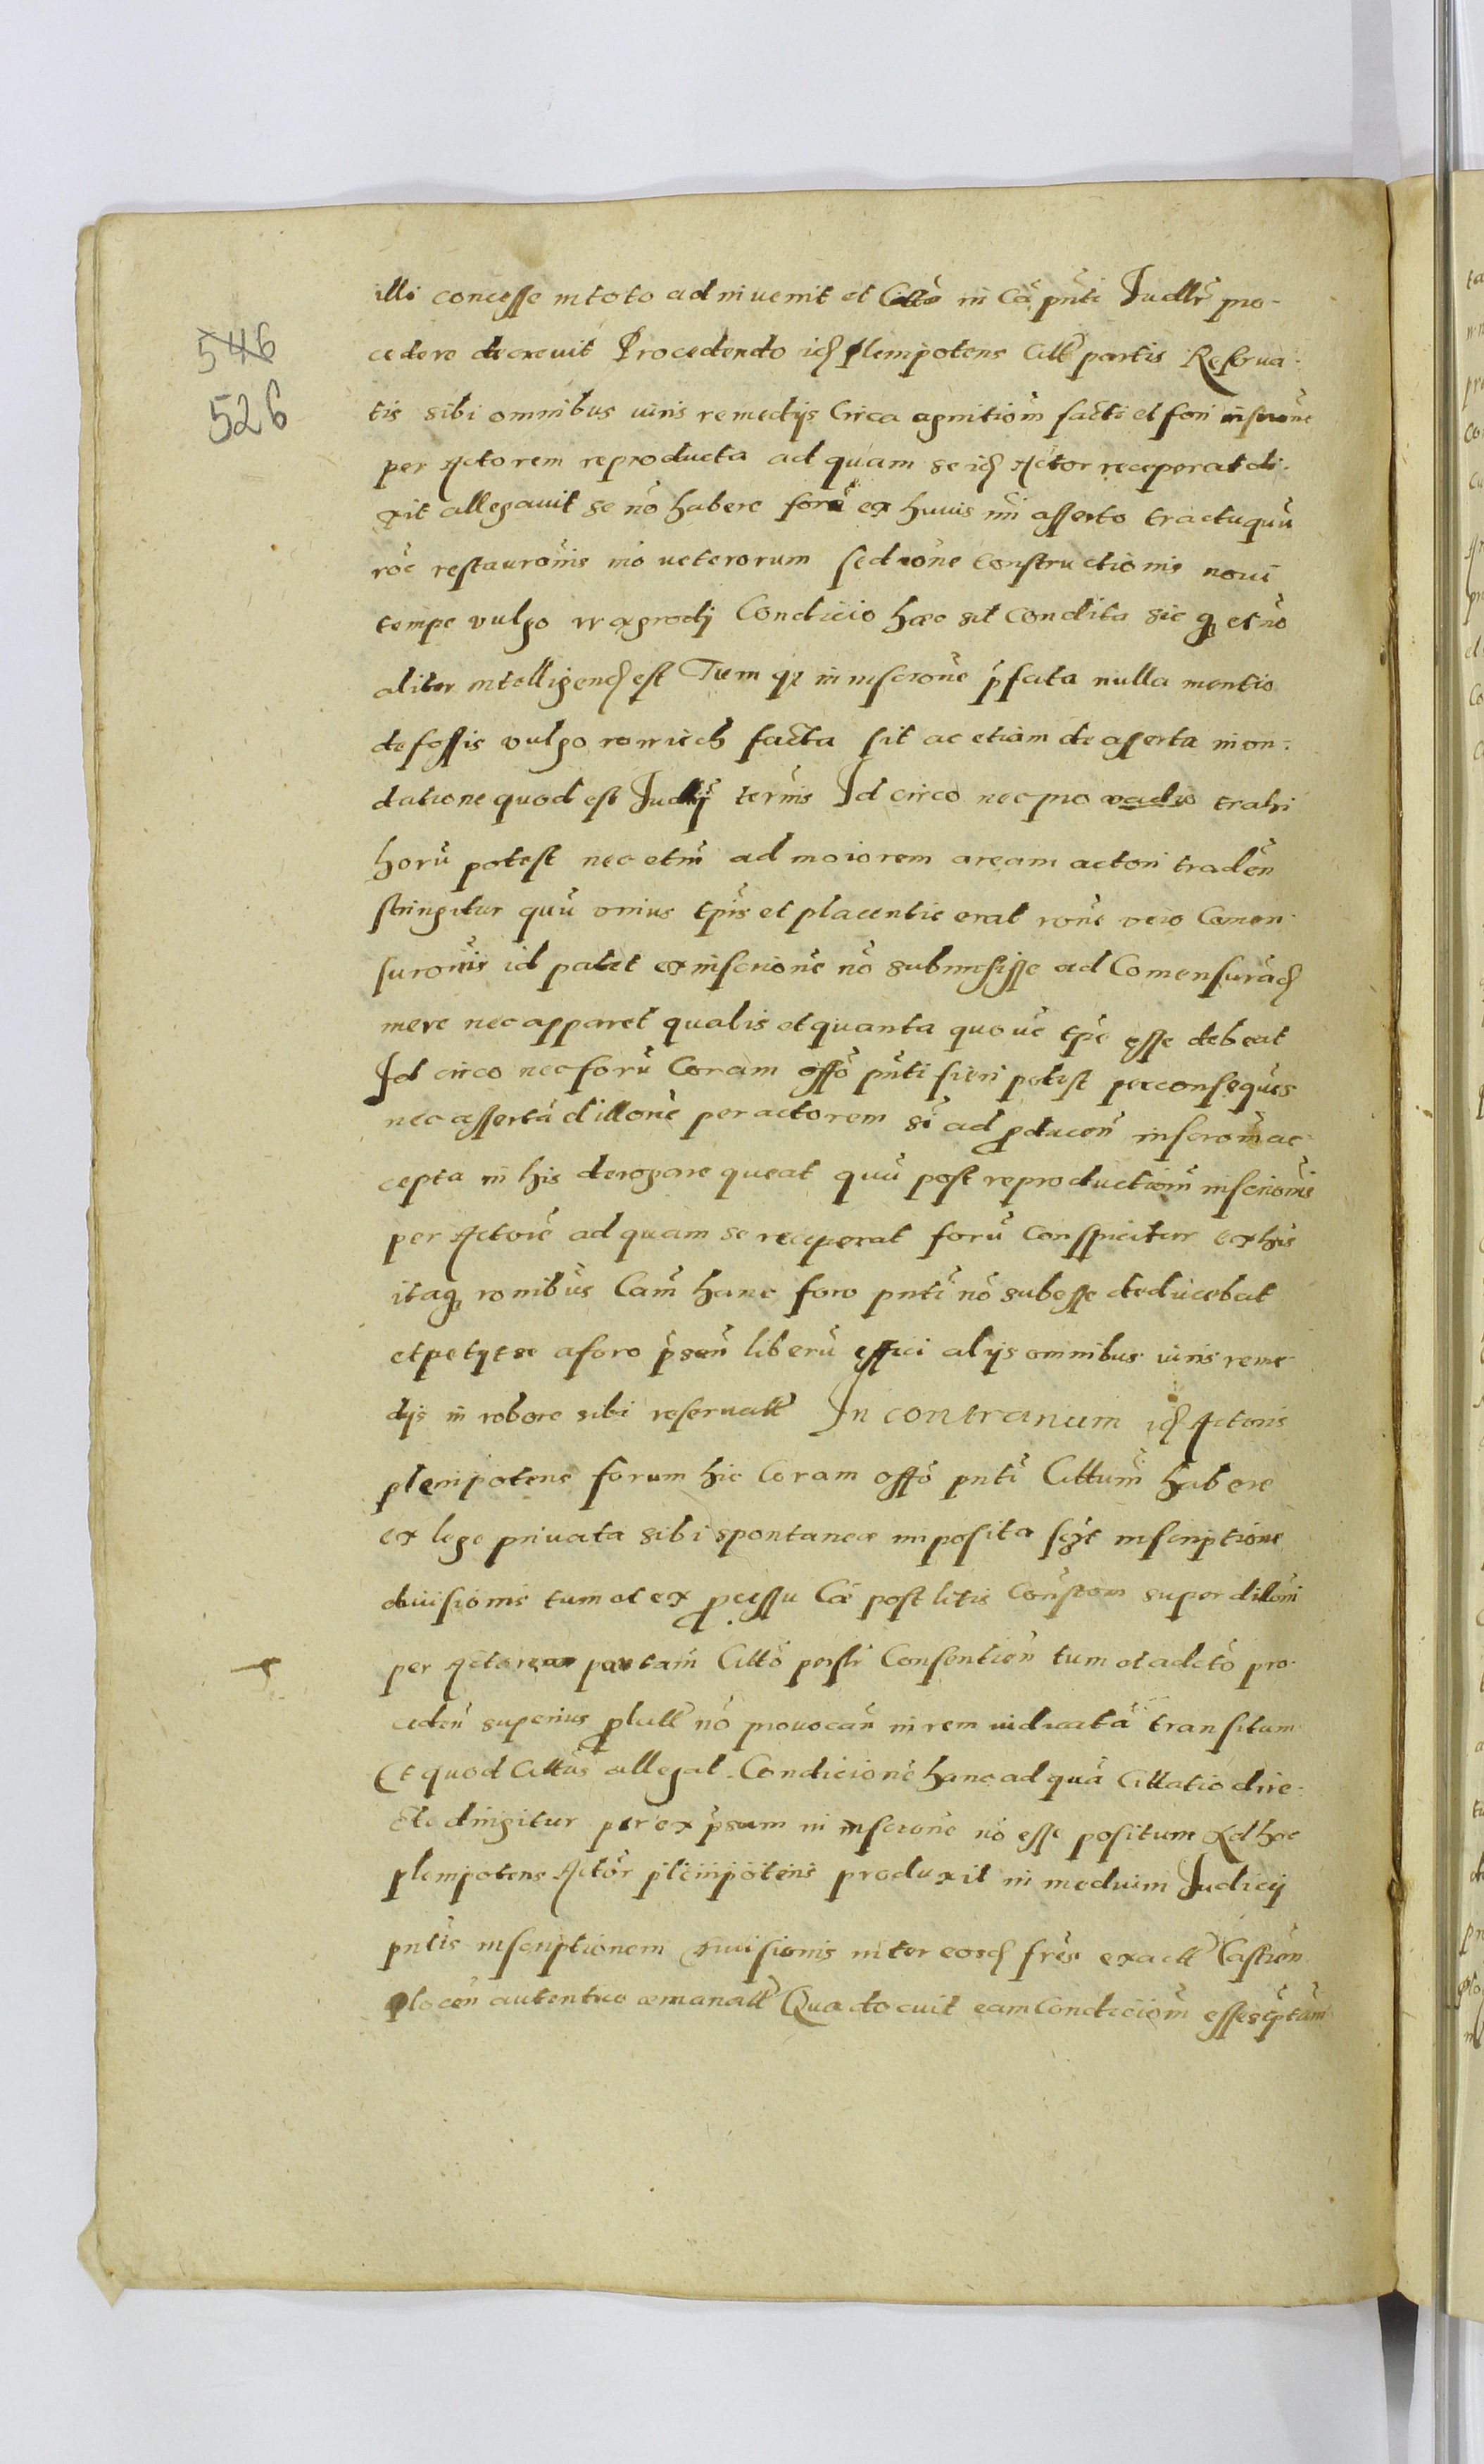 546
526
illi concesse in toto adinuenit et Citto in Ca pnti Judlr pro-
cedere decreuit Procedendo id plenipotens Citt partis Reserua-
tis sibi omnibus iuris remedijs Circa agnitiom facti et fori inscrione
per Actorem reproducta ad quam se id Actor receperat di-
xit allegauit se no habere foru ex huius mi asserto tractu quu
roe restauronis no veterorum sed rone constructionis noui
tempe vulgo w ogrodj Condicio haec sit condita sic q et no
aliter intelligend est Tum q in inscrone pfata nulla mentio
de fossis vulgo rowiech facta sit ac etiam de aserta inon-
datione quod est Judij termis Id circo nec pro vadio trahi
horu potest nec etm ad maiorem aream actori traden
stringitur quu vnius tpis et placentie erat rone vero Comen-
suronis id patet ex inscrione no submisisse ad Comensurad
mere nec apparet qualis et quanta quo ue tpe esse debeat
Id circo nec foru Coram offo pnti fieri potest per conseques
nec asserta dillone per actorem si ad pducen inscrom ac-
cepta in his derogare queat quu post reproductiom inscrionis
per Actore ad quam se receperat foru conspicitur ex his
itaq ronibus Cam hanc foro pnti no subesse deducebat
et petijt se a foro psen liberu effici alijs omnibus iuris reme-
dijs in robore sibi reseruatt In contrarium id Actoris
plenipotens forum hic Coram offo pnti Cittum habere
ex lege priuata sibi spontaneae imposita sczt inscriptione
diuisionis tum et ex pcessu Cae post litis Constom super dilloni
per Actorem portam Citto persli Consentien tum et adcto pro-
ceden superius platt no prouocan in rem iudicata transitum
Et quod Cittus allegat Condicione hanc ad qua Cittatio dire-
cte dirigitur per expsum in inscrone no esse positum Ad hoc
plenipotens Actor plenipotens produxit in medium Judicij
pntis inscriptionem diuisionis inter eosd fres exactt Castren
plocen autentice aemanatt Qua docuit eam Condiciom esse scptam